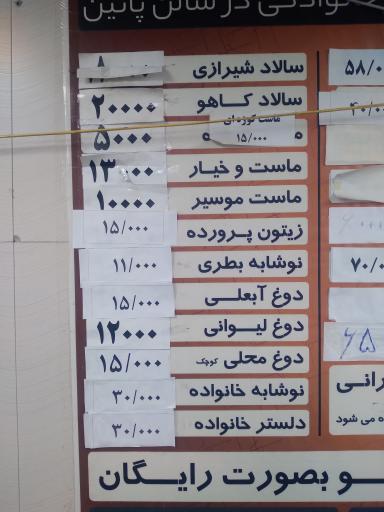 خانوادگی در سالن پایین
سالاد شیرازی
سالاد کاهو ۲۰۰۰۰
ماست کوزه ای
۱۵/۰۰۰ ۵۰۰۰
ماست و خیار ۱۳۰۰۰
ماست موسیر ۱۰۰۰۰
زیتون پرورده ۱۵/۰۰۰
نوشابه بطری ۱۱/۰۰۰
دوغ آبعلی ۱۵/۰۰۰
دوغ لیوانی ۱۲۰۰۰
دوغ محلی کوچک ۱۵/۰۰۰
نوشابه خانواده ۳۰/۰۰۰
دلستر خانواده ۳۰/۰۰۰
و بصورت رایگان
۵۸/۰
۴۰/۰۰
۷۰/۰
۶۵
رانی
ه می شود